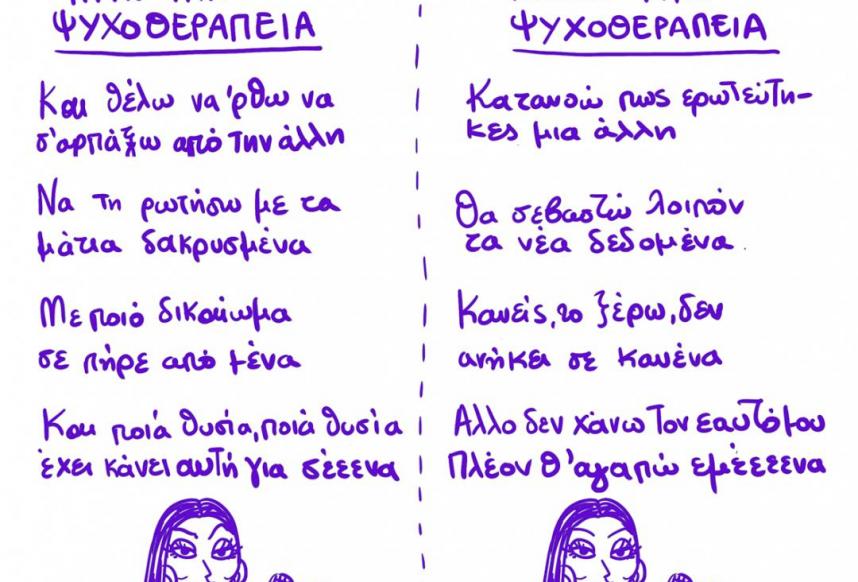 ΨΥΧΟΘΕΡΑΠΕΙΑ
Και θέλω να 'ρθω να
σ'αρπάξω από την άλλη
Να τη ρωτήσω με τα
μάτια δακρυσμένα
Με ποιό δικαίωμα
σε πήρε από μένα
Και ποιά θυσία, ποιά θυσία
έχει κάνει αυτή για σέεενα
ΨΥΧΟΘΕΡΑΠΕΙΑ
Κατανοώ πως ερωτεύτη-
κες μια άλλη
Θα σεβαστώ λοιπόν
τα νέα δεδομένα
Κανείς, το ξέρω, δεν
ανήκει σε κανένα
Άλλο δεν χάνω τον εαυτό μου
Πλέον θ'αγαπώ εμέεεενα